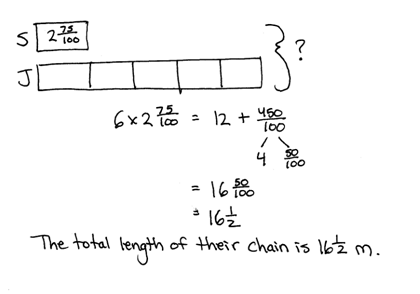 S 2 75/100
J ?
6 × 2 75/100 = 12 + 450/100
4 50/100
= 16 50/100
= 16 1/2
The total length of their chain is 16 1/2 m.